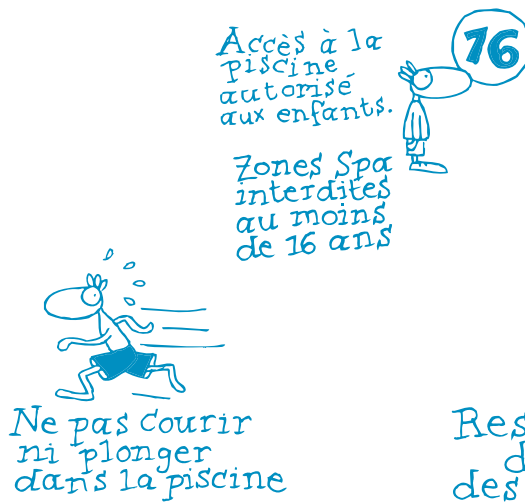 Accès à la
piscine
autorisé
aux enfants.
16
Zones Spa
interdites
au moins
de 16 ans
Ne pas courir
ni plonger
dans la piscine
des